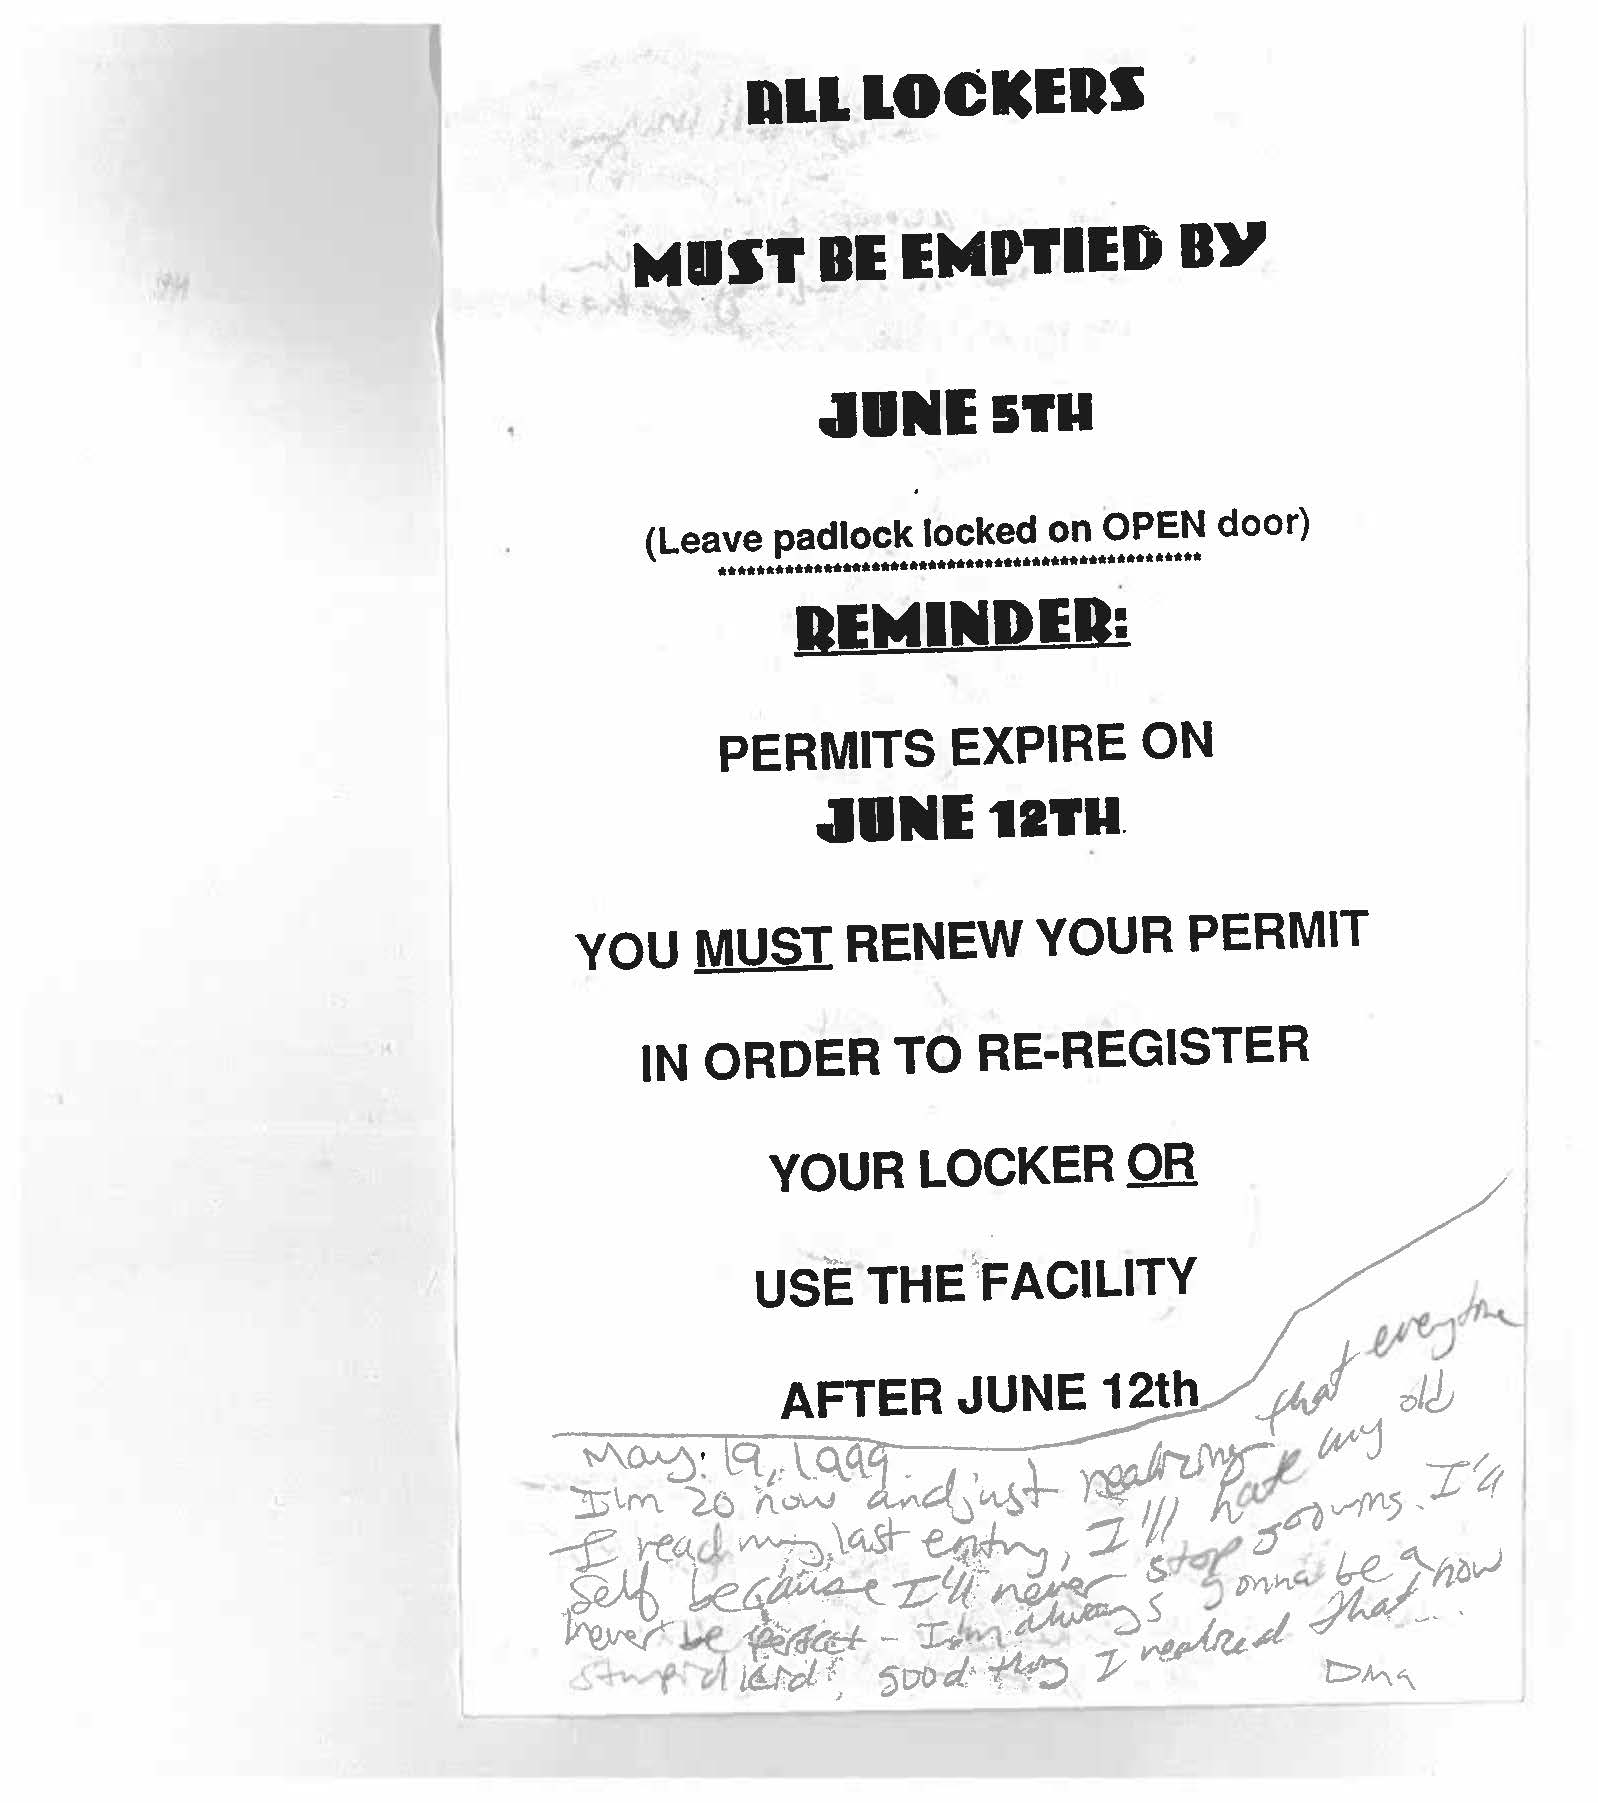 ALL LOCKERS
MUST BE EMPTIED BY
JUNE 5TH
(Leave padlock locked on OPEN door)
************************************************
REMINDER:
PERMITS EXPIRE ON
JUNE 12TH
YOU MUST RENEW YOUR PERMIT
IN ORDER TO RE-REGISTER
YOUR LOCKER OR
USE THE FACILITY
AFTER JUNE 12th
May. 19, 1999.
I'm 20 now and just realizing that everytime
I read my last entry, I'll hate my old
self because I'll never stop growing. I'll
never be perfect - I'm always gonna be a
stupid kid, good thing I realized that now...